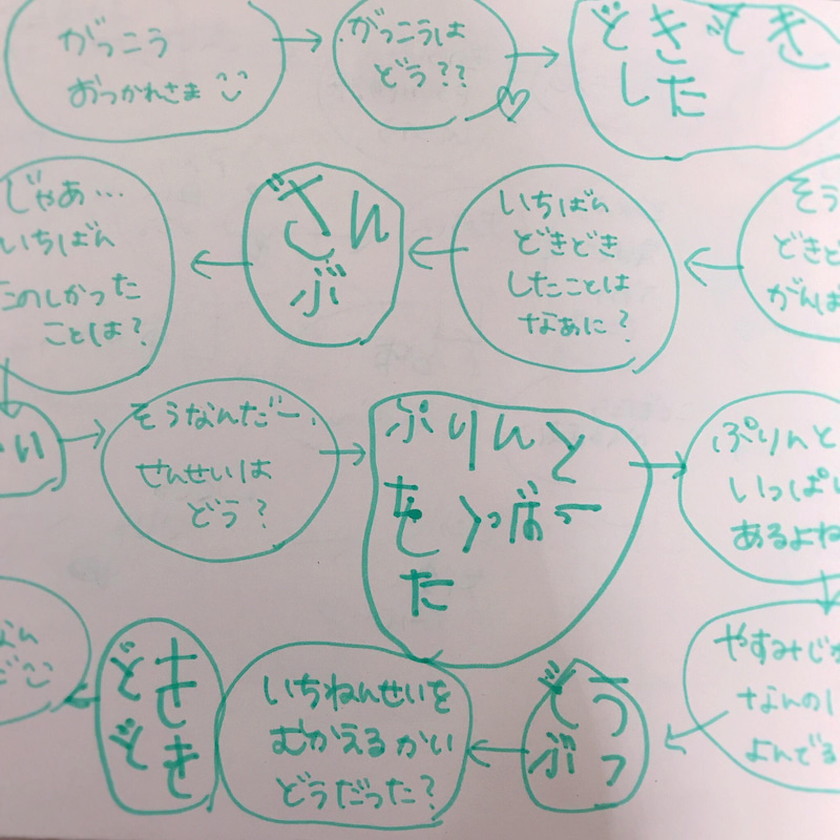 がっこう
おつかれさま
がっこうは
どう??
どきどき
した
そう
どきど
がんば
いちばん
どきどき
したことは
なあに?
ぜん
ぶ
じゃあ…
いちばん
たのしかった
ことは?
い
そうなんだー、
せんせいは
どう?
ぷりんと
をくばっ
た
ぷりんと
いっぱい
あるよね
やすみじか
なんの
よんでる
どうぶつ
いちねんせいを
むかえるかい
どうだった?
どき
どき